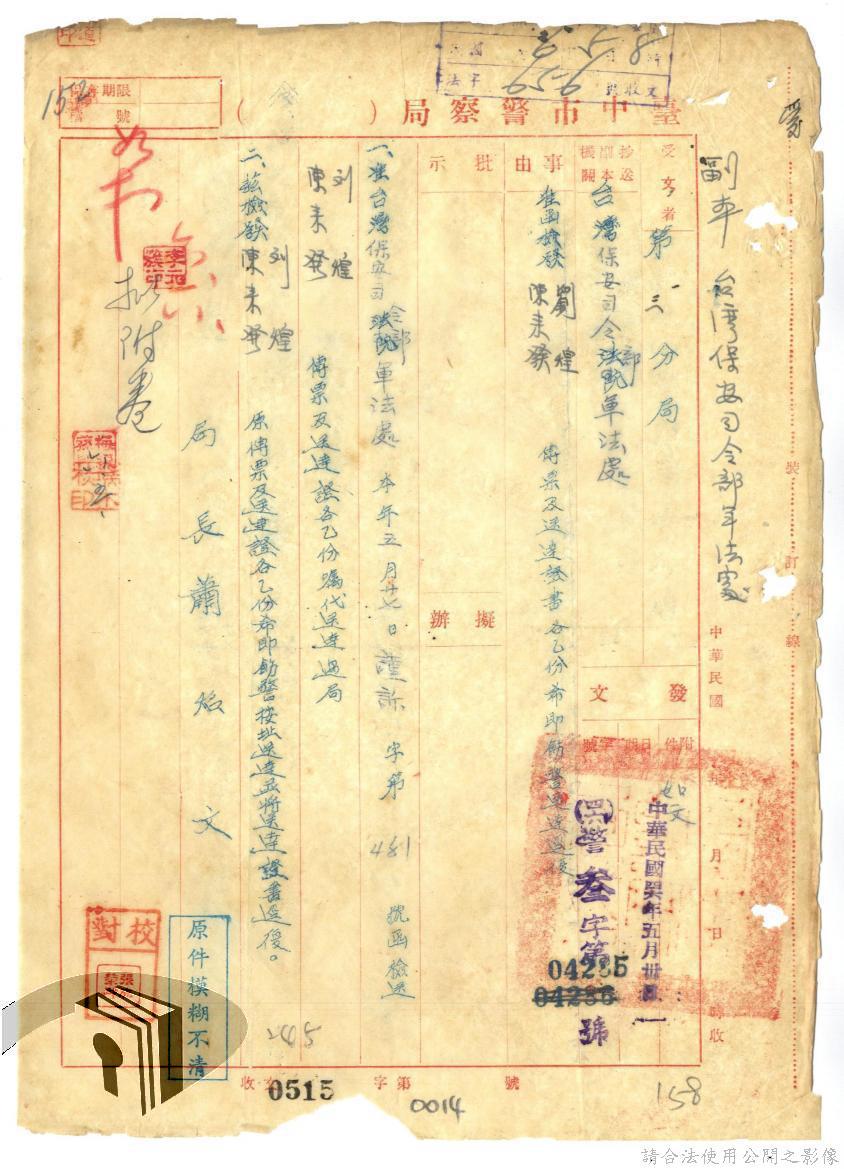 臺中市警察局（　）
副本 台湾保安司令部軍法處
受文者
第三分局
抄送副本機關
台灣保安司令部軍法處
中華民國 年 月 日 時收
發文
附件
日期
字號
如文
中華民國 年五月卅
警叁字第 號
04235
04236
事由
准函檢發劉煌 陳来發 傳票及送達證書各乙份希即飭警送達
批示
擬辦
一、准台灣保安司令部軍法處本年五月廿七日 字第481號函檢送
刘煌 陳来發 傳票及送達證各乙份囑代送達過局
二、茲檢發刘煌 陳来發 原傳票及送達證各乙份希即飭警按址送達並將送達證書送後。
局長蕭 文
擬附卷
校對
原件模糊不清
245
收文 字第 號
0515
0014
158
152
保存期限
檔號
裝訂線
請合法使用公開之影像